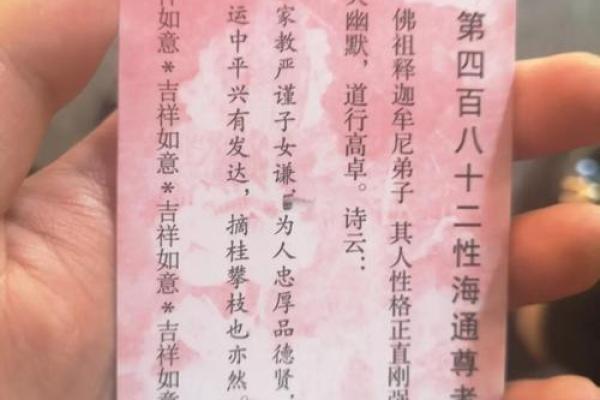 第四百八十二性海通尊者
佛祖释迦牟尼弟子 其人性格正直刚强
幽默，道行高卓。诗云：
家教严谨子女谦，为人忠厚品德贤，
运中平兴有发达，摘桂攀枝也亦然。
如意*吉祥如意*吉祥如意*吉祥如意